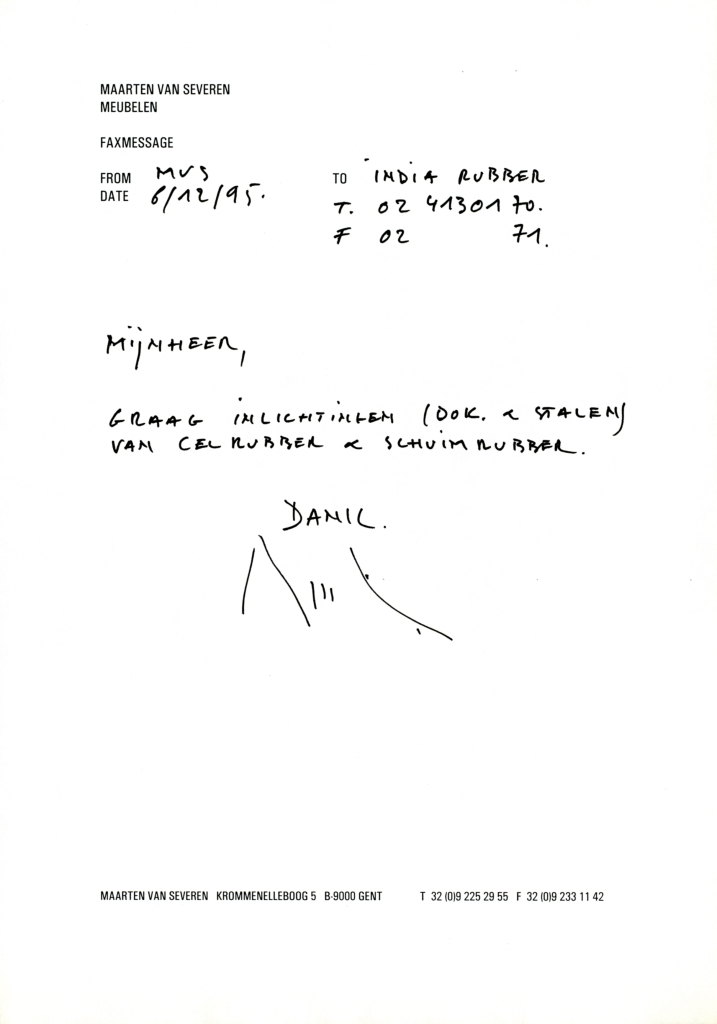 MAARTEN VAN SEVEREN
MEUBELEN
FAXMESSAGE
FROM MVS
DATE 6/12/95.
TO INDIA RUBBER
T. 02 4130170.
F 02 71.
MIJNHEER,
GRAAG INLICHTINGEN (DOK. & STALEN)
VAN CELRUBBER & SCHUIMRUBBER.
DANK.
MAARTEN VAN SEVEREN KROMMENELLEBOOG 5 B-9000 GENT T 32 (0)9 225 29 55 F 32 (0)9 233 11 42